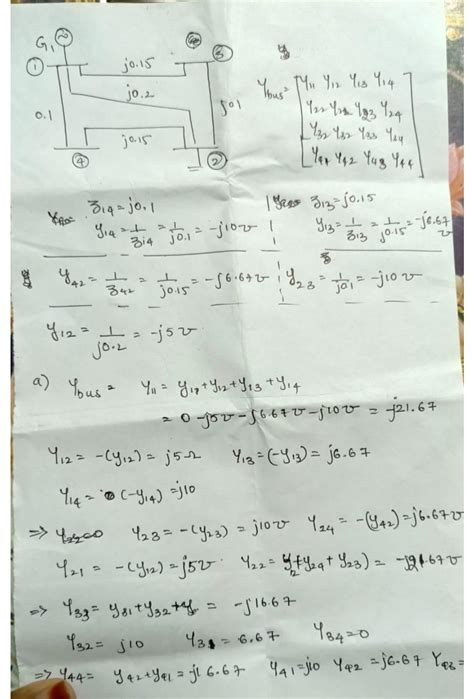 G1
① j0.15 ③
j0.2
0.1 j01
j0.15
④ ②
Ybus = [Y11 Y12 Y13 Y14
Y22 Y22 Y23 Y24
Y32 Y32 Y33 Y34
Y41 Y42 Y43 Y44]
z14 = j0.1
y14 = 1/z14 = 1/j0.1 = -j10 ʊ
z13 = j0.15
y13 = 1/z13 = 1/j0.15 = -j6.67 ʊ
y42 = 1/z42 = 1/j0.15 = -j6.67 ʊ
y23 = 1/j01 = -j10 ʊ
y12 = 1/j0.2 = -j5 ʊ
a) Ybus = Y11 = y10+y12+y13+y14
= 0-j5ʊ-j6.67ʊ-j10ʊ = -j21.67
Y12 = -(y12) = j5Ω Y13 = (-y13) = j6.67
Y14 = (-y14) = j10
⇒ Y23 = -(y23) = j10ʊ Y24 = -(y42) = j6.67ʊ
Y21 = -(y12) = j5ʊ Y22 = y12+y24+y23) = -j21.67ʊ
⇒ Y33 = y31+y32+ = -j16.67
Y32 = j10 Y31 = 6.67 Y34 = 0
⇒ Y44 = y42+y41 = j16.67 Y41 = j10 Y42 = j6.67 Y43 =